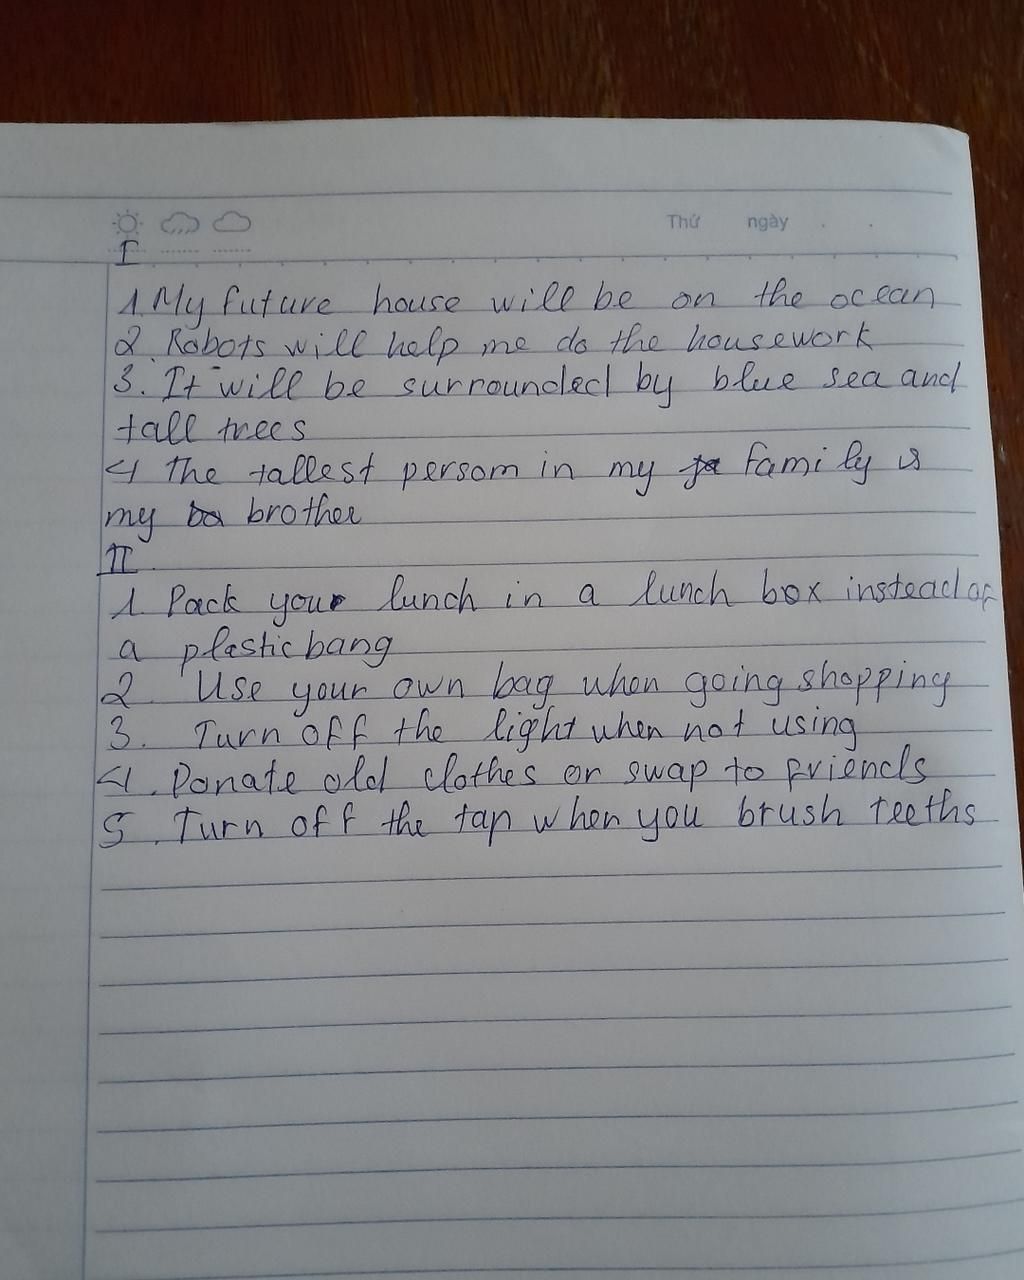 Thứ ngày
I
1. My future house will be on the ocean
2. Robots will help me do the housework
3. It will be surrounded by blue sea and
tall trees
4 The tallest persom in my family is
my brother
II
1. Pack your lunch in a lunch box instead of
a plastic bang
2. Use your own bag when going shopping
3. Turn off the light when not using
4. Donate old clothes or swap to friends
5. Turn off the tap when you brush teeths